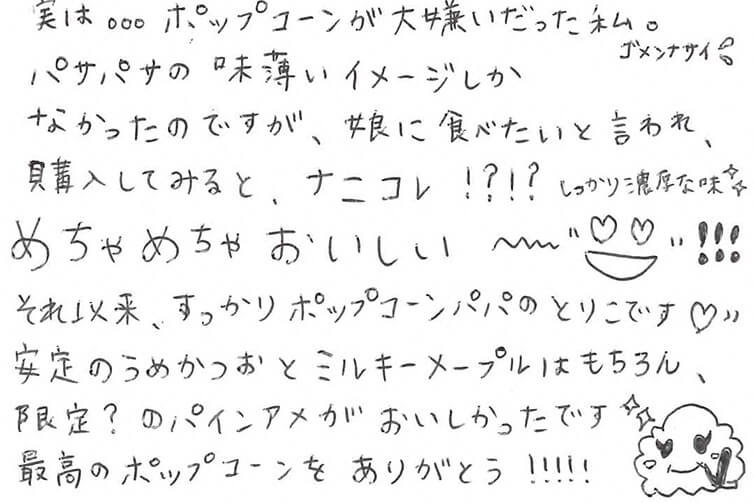 実は。。。ポップコーンが大嫌いだった私。
ゴメンナサイ
パサパサの 味薄い イメージしか
なかったのですが、娘に 食べたいと 言われ、
購入してみると、ナニコレ !?!? しっかり濃厚な味
めちゃめちゃ おいしい 〰 "♡♡" !!!
それ以来、すっかり ポップコーンパパの とりこです♡〃
安定のうめかつおと ミルキーメープルは もちろん、
限定?のパインアメが おいしかったです
最高の ポップコーンを ありがとう !!!!!